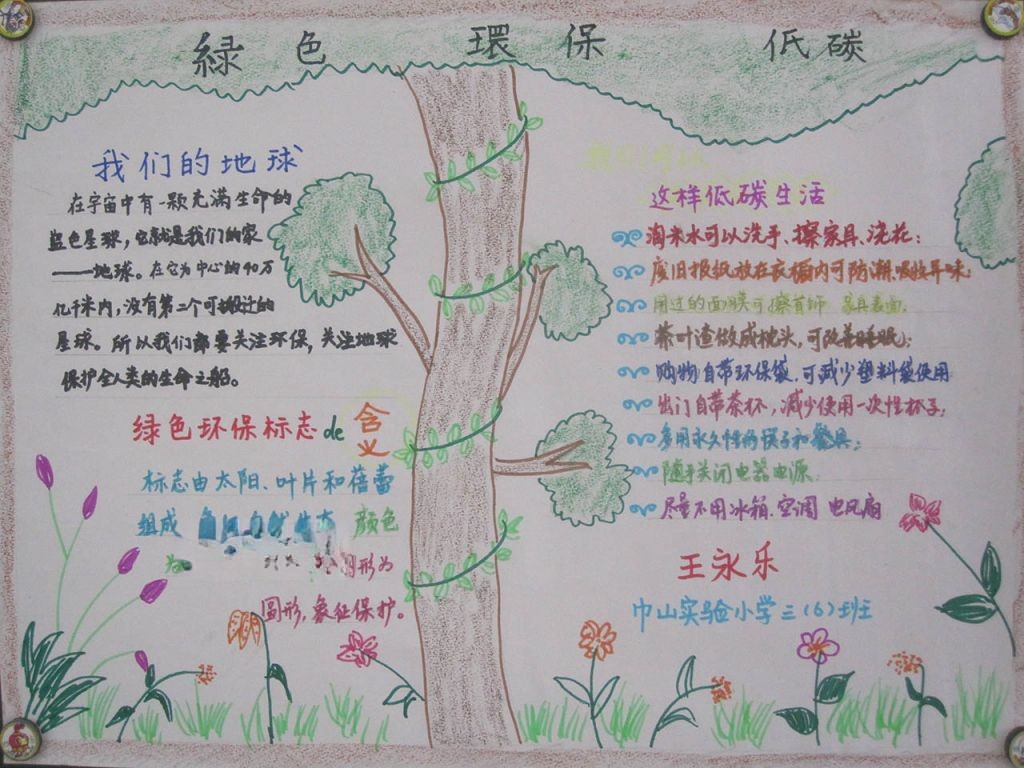 綠色 環保 低碳
我们的地球
在宇宙中有一颗充满生命的
蓝色星球，它就是我们的家
——地球。在它为中心的40万
亿千米内，没有第二个可搬迁的
星球。所以我们都要关注环保，关注地球
保护全人类的生命之船。
绿色环保标志de含义
标志由太阳、叶片和蓓蕾
组成 自然生态 颜色
为 形为
圆形，象征保护。
这样低碳生活
淘米水可以洗手、擦家具、浇花；
废旧报纸放在衣橱内可防潮、吸收异味；
用过的面膜可擦首饰 家具表面，
茶叶渣做成枕头，可改善睡眠；
购物自带环保袋，可减少塑料袋使用
出门自带茶杯，减少使用一次性杯子；
多用永久性的筷子和餐具；
随手关闭电器电源，
尽量不用冰箱、空调 电风扇
王永乐
巾山实验小学三（6）班